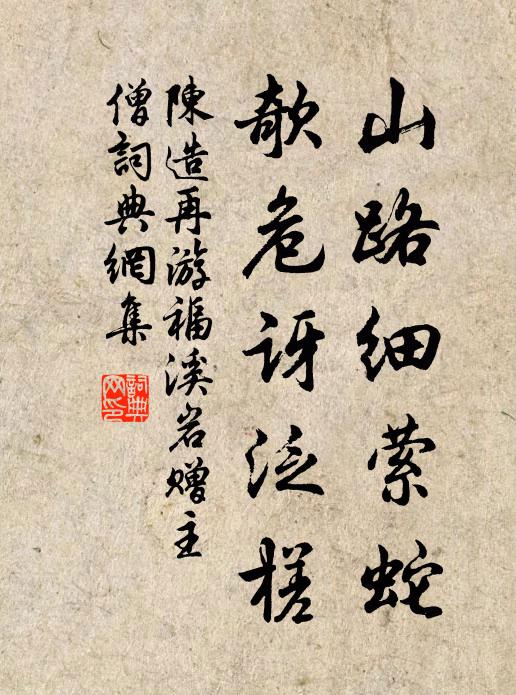 山路細萦蛇
欹危讶泛槎
陳造再游福溪岩赠主
僧詞典網集
詞典
网印